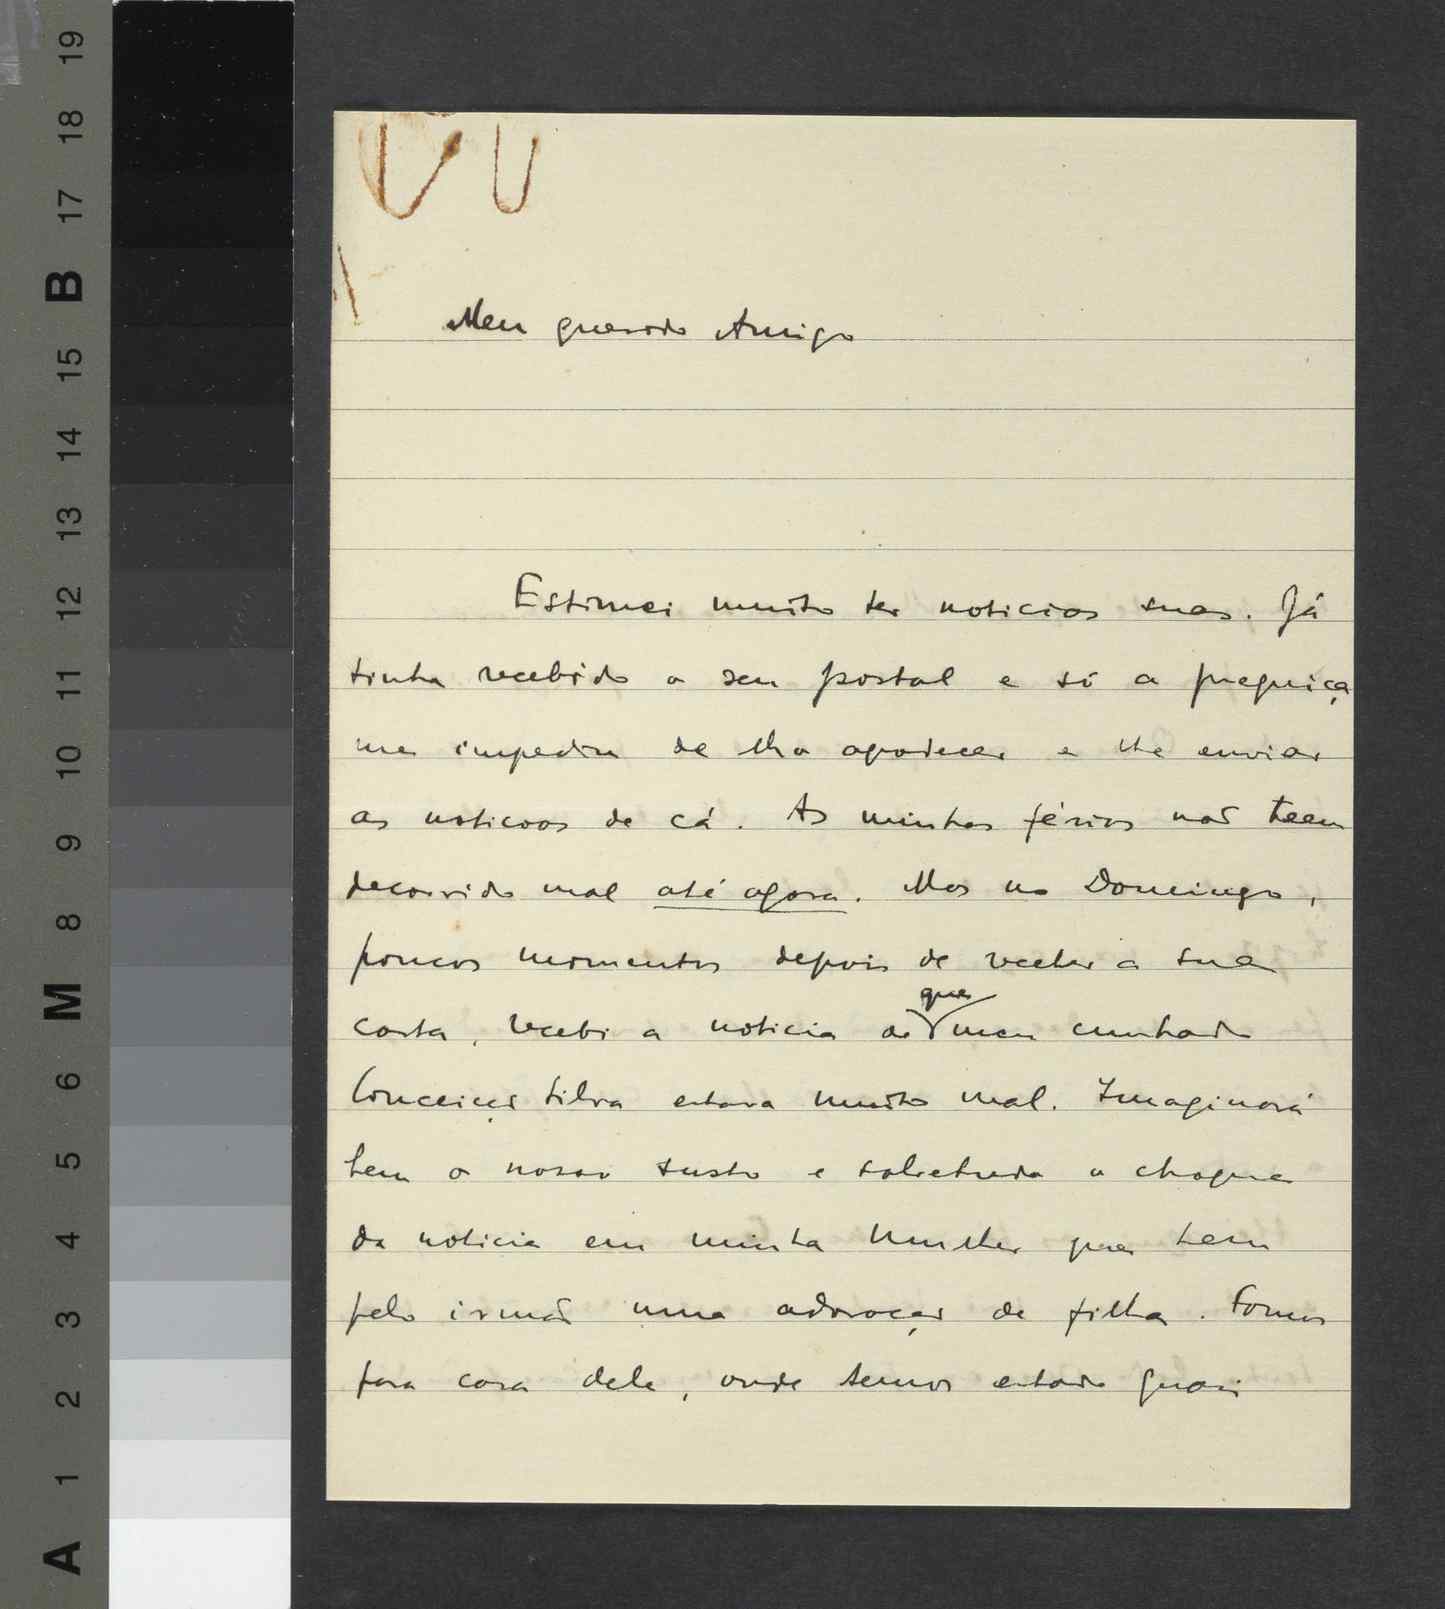 19
18
17
B
15
14
13
12
11
10
9
8
M
6
5
4
3
2
1
A
Meu querido Amigo
Estimei muito ter noticias suas. Já
tinha recebido o seu postal e só a preguiça
me impediu de lho agradecer e lhe enviar
as noticias de cá. As minhas férias não teem
decorrido mal até agora. Mas no Domingo,
poucos momentos depois de receber a sua
carta, recebi a noticia de que meu cunhado
Conceição Silva estava muito mal. Imaginará
bem o nosso susto e sobretudo o choque
da noticia em minha mulher que tem
pelo irmão uma adoração de filha. Fomos
para casa dele, onde temos estado quasi